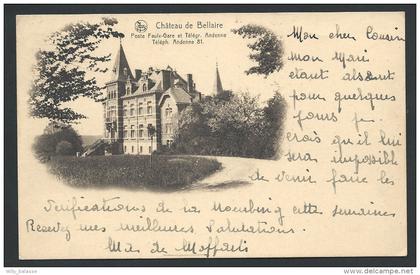 Château de Bellaire
Poste Faulx-Gare et Télégr. Andenne
Téléph. Andenne 81.
Mon cher Cousin
Mon Mari
étant absent
pour quelques
jours
crois qu'il lui
sera impossible
de venir faire les
Vérifications de la Houbing cette semaine
Recevez mes meilleures Salutations.
de Moffarts